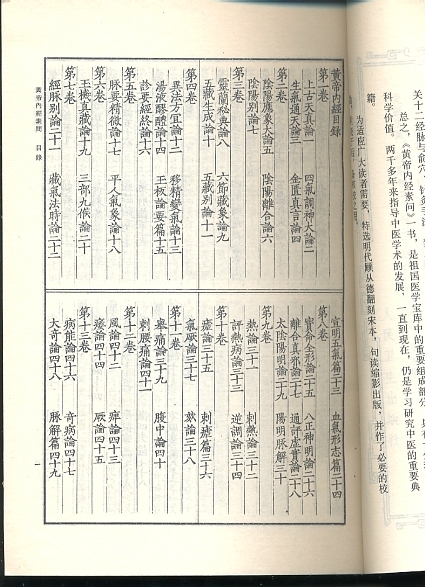 关十二经脉与俞穴、针灸手法
总之,《黄帝内经素问》一书,是祖国医学宝库中的重要组成部分,具有
科学价值,两千多年来指导中医学术的发展,一直到现在,仍是学习研究中医的重要典
籍。
为适应广大读者需要,特选明代顾从德翻刻宋本,句读缩影出版,并作了必要的校
黄帝内經目録
第一卷
上古天真論一 四氣調神大論二
生氣通天論三 金匱真言論四
第二卷
陰陽應象大論五 陰陽離合論六
陰陽別論七
第三卷
靈蘭秘典論八 六節藏象論九
五藏生成論十 五藏別論十一
第四卷
異法方宜論十二 移精變氣論十三
湯液醪醴論十四 玉板論要篇十五
診要經終論十六
第五卷
脉要精微論十七 平人氣象論十八
第六卷
玉機真藏論十九 三部九候論二十
第七卷
經脉別論二十一 藏氣法時論二十二
宣明五氣篇二十三 血氣形志篇二十四
第八卷
寶命全形論二十五 八正神明論二十六
離合真邪論二十七 通評虚實論二十八
太陰陽明論二十九 陽明脉解三十
第九卷
熱論三十一 刺熱論三十二
評熱病論三十三 逆調論三十四
第十卷
瘧論三十五 刺瘧篇三十六
氣厥論三十七 欬論三十八
第十一卷
舉痛論三十九 腹中論四十
刺腰痛論四十一
第十二卷
風論四十二 痺論四十三
痿論四十四 厥論四十五
第十三卷
病能論四十六 奇病論四十七
大奇論四十八 脉解篇四十九
黄帝内經素問 目録
一